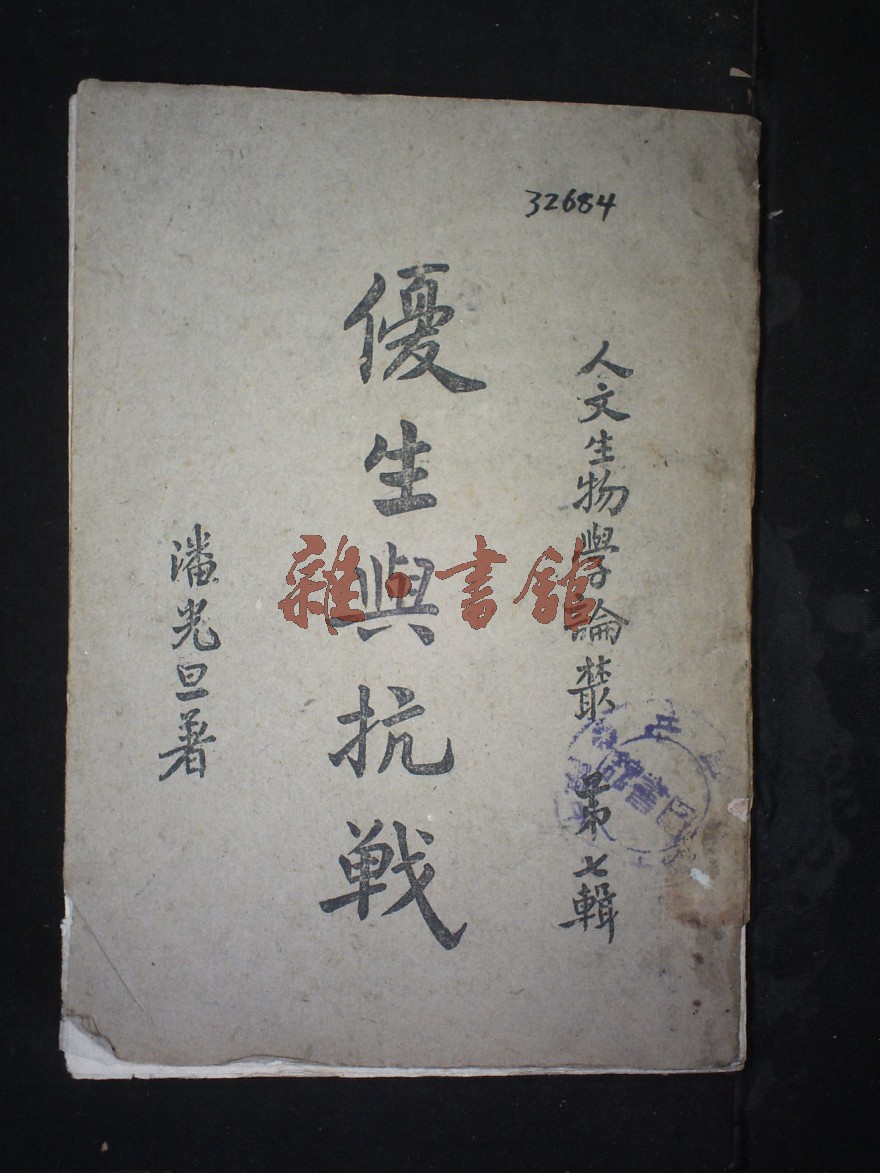 32684
人文生物學論叢 第七輯
優生與抗戰
潘光旦著
雜·書館
圖書館